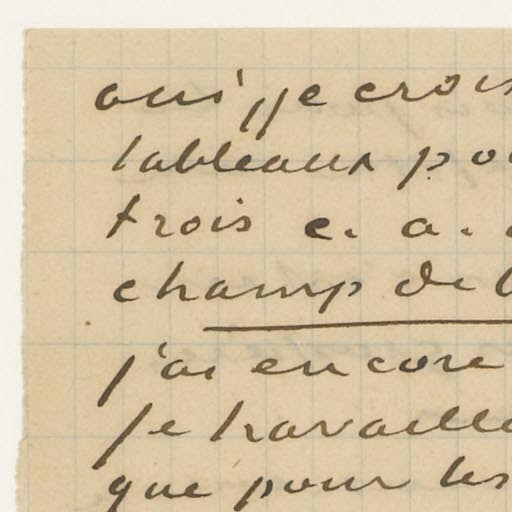 aussi, je crois
tableaux po
trois c. a.
champ de
j'ai encore
je travaille
que pour les